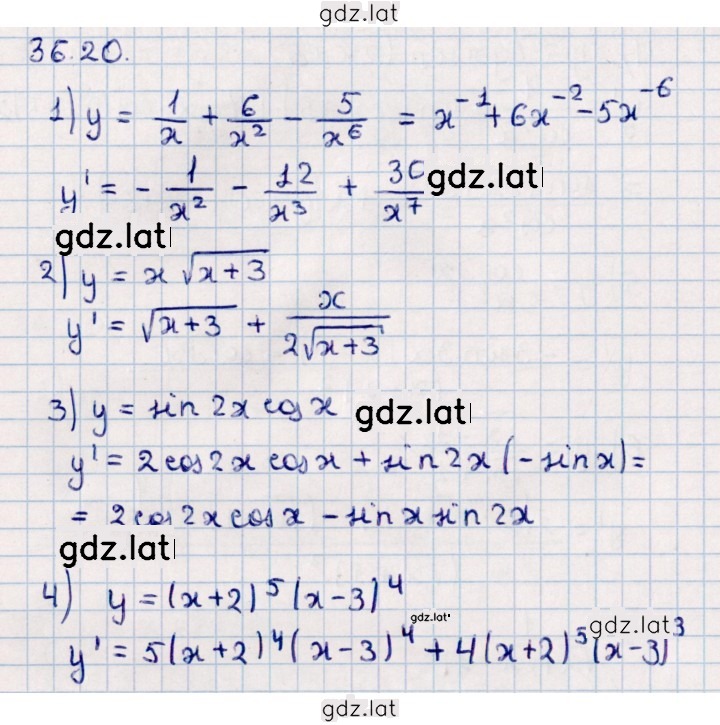 gdz.lat
36.20.
1) y = 1/x + 6/x² - 5/x⁶ = x⁻¹ + 6x⁻² - 5x⁻⁶
y' = - 1/x² - 12/x³ + 30/x⁷ gdz.lat
gdz.lat
2) y = x √(x+3)
y' = √(x+3) + x/(2√(x+3))
3) y = sin 2x cos x gdz.lat
y' = 2 cos 2x cos x + sin 2x (- sin x) =
= 2 cos 2x cos x - sin x sin 2x
gdz.lat
4) y = (x+2)⁵ (x-3)⁴
gdz.lat gdz.lat
y' = 5(x+2)⁴ (x-3)⁴ + 4(x+2)⁵ (x-3)³
gdz.lat